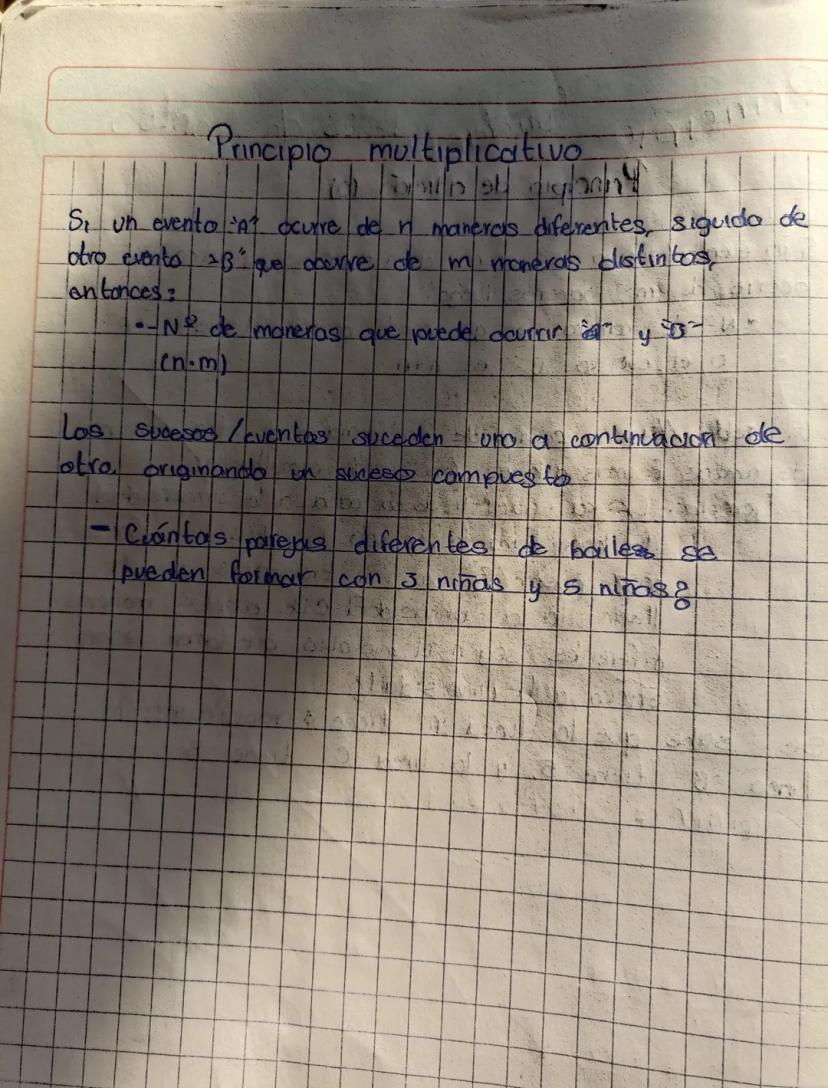 Principio multiplicativo
Si un evento "A" ocurre de n maneras diferentes, siguido de
otro evento "B" que ocurre de m maneras distintas,
entonces:
•- Nº de maneras que puede ocurrir "a" y "B"
(n·m)
Los sucesos/eventos suceden uno a continuación de
otro, originando un suceso compuesto
- Cuántas parejas diferentes de bailes se
pueden formar con 3 niñas y 5 niños?